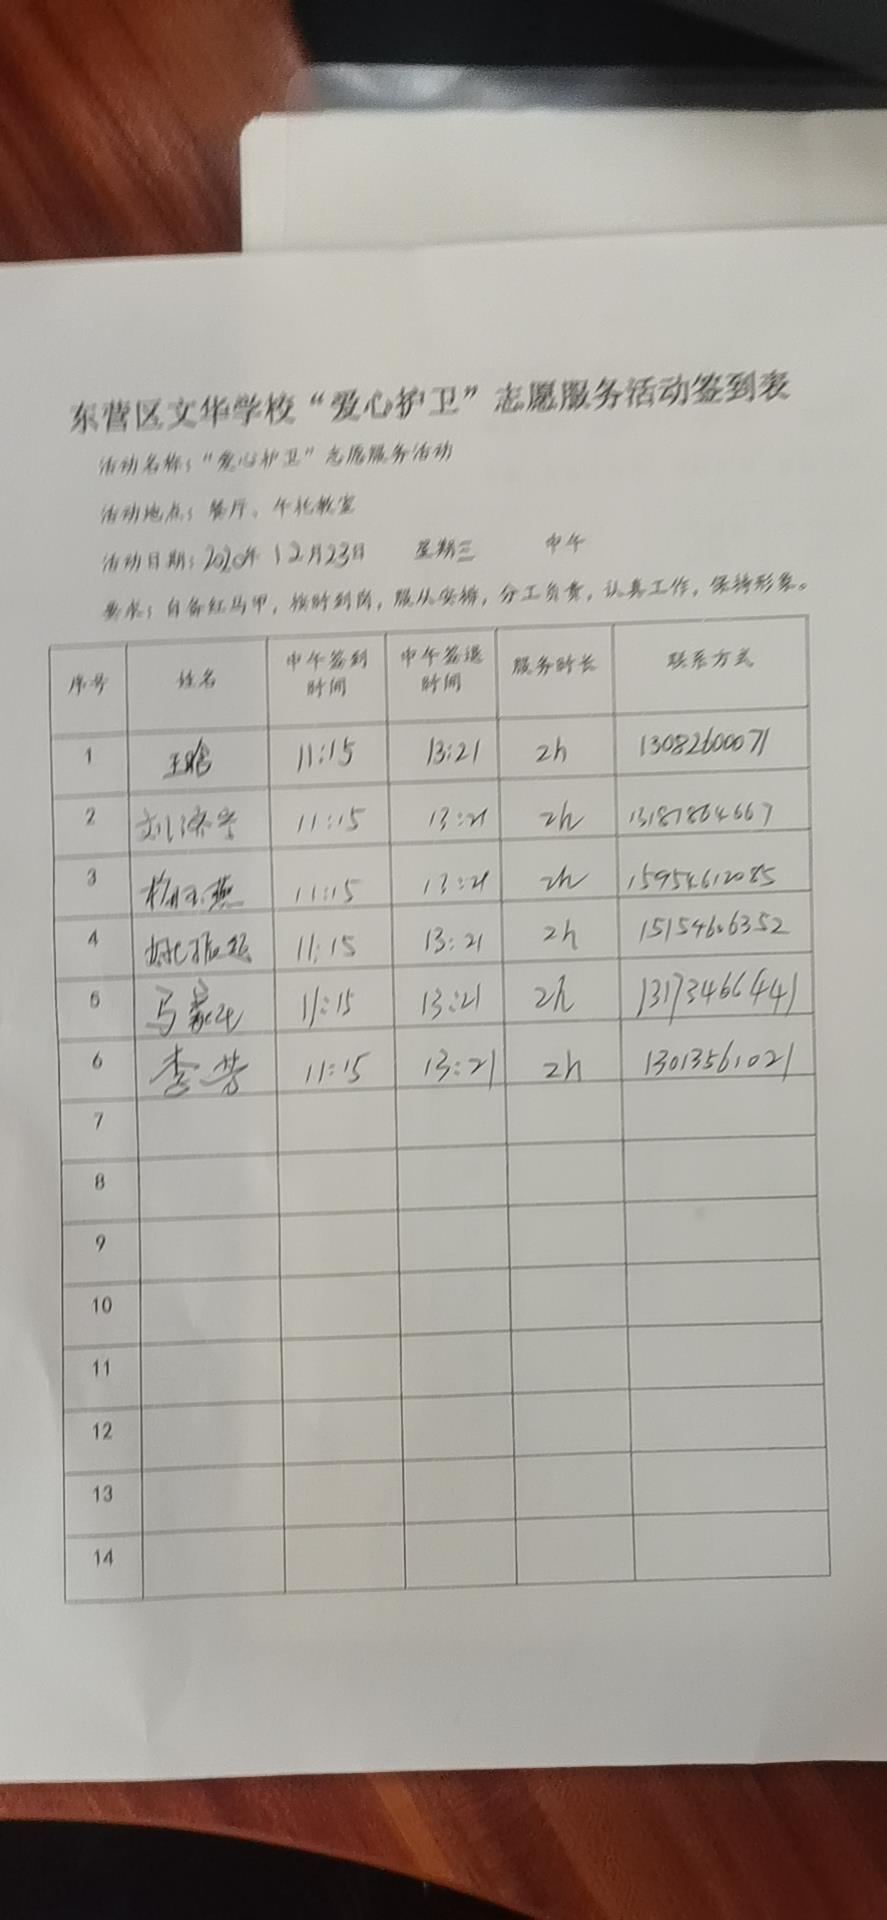 东营区文华学校“爱心护卫”志愿服务活动签到表
活动名称：“爱心护卫”志愿服务活动
活动地点：餐厅、午托教室
活动日期：2020年12月23日 星期三 中午
要求：自备红马甲，按时到岗，服从安排，分工负责，认真工作，保持形象。
序号 姓名 中午签到时间 中午签退时间 服务时长 联系方式
1 11:15 13:21 2h 13082600071
2 11:15 13:21 2h 13187864667
3 11:15 13:21 2h 15954612085
4 11:15 13:21 2h 15154606352
5 11:15 13:21 2h 13173466441
6 李芳 11:15 13:21 2h 13013561021
7
8
9
10
11
12
13
14